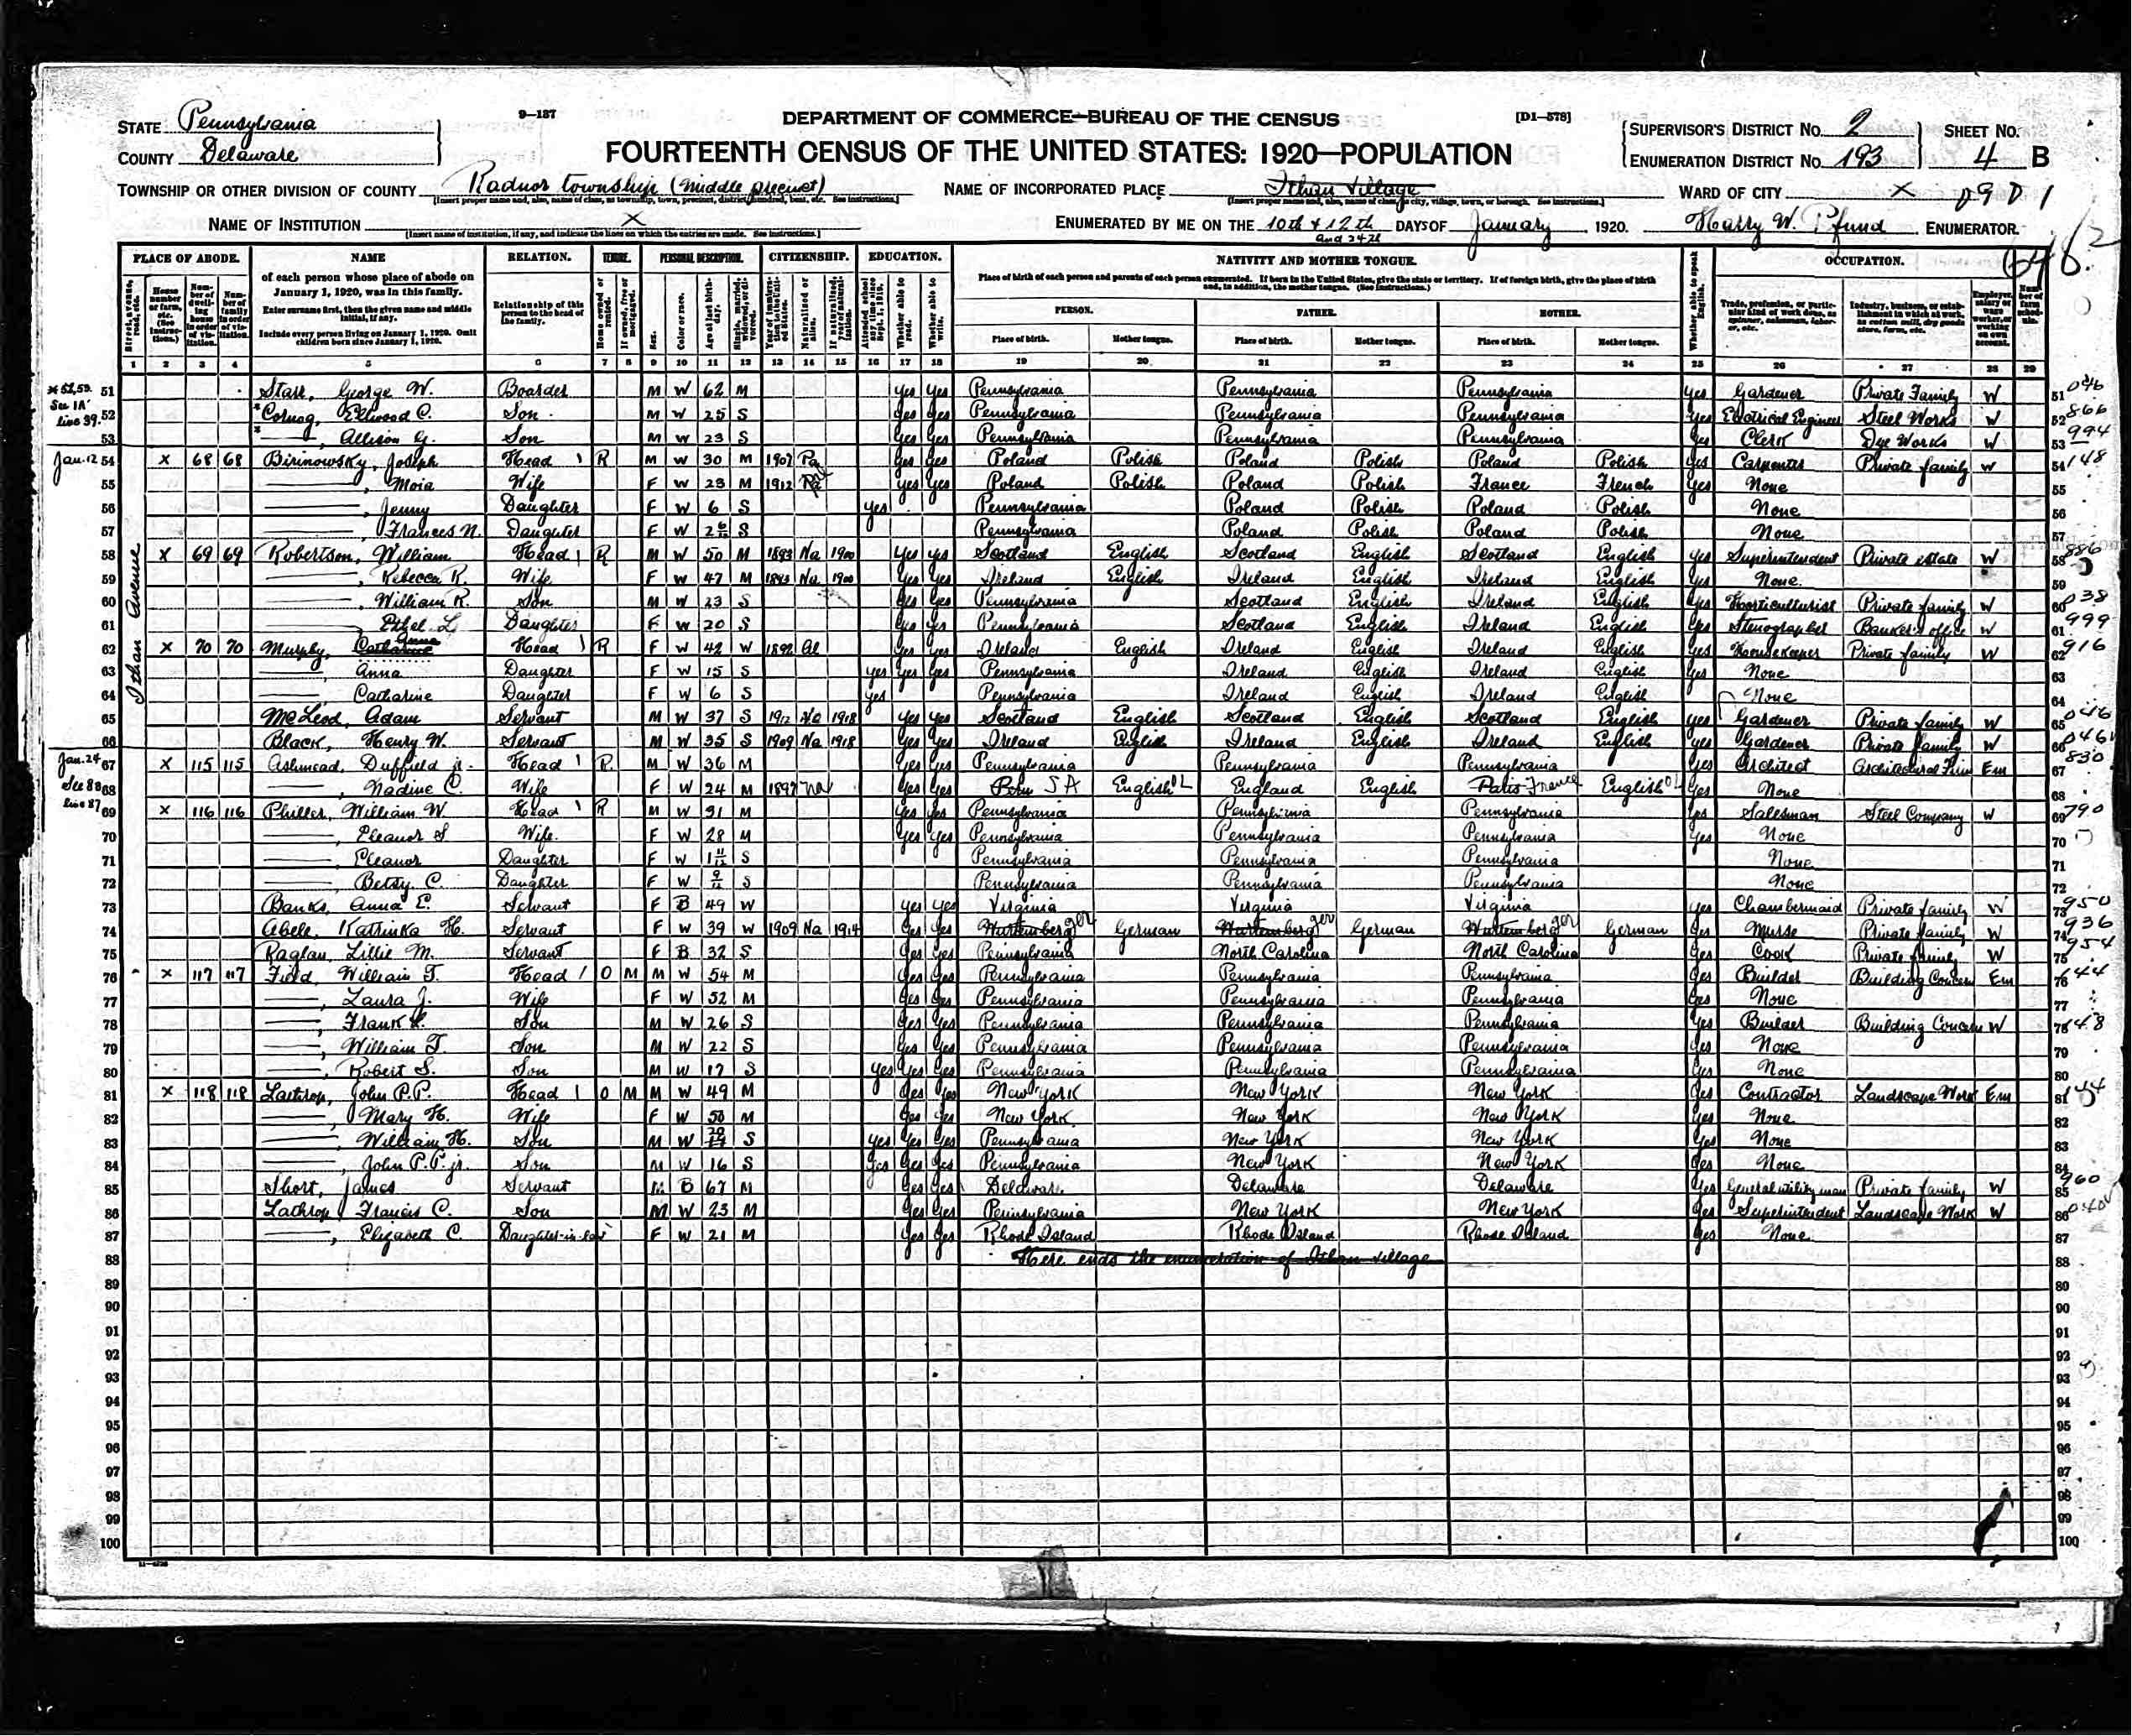 9—137
DEPARTMENT OF COMMERCE—BUREAU OF THE CENSUS
[D1—578]
STATE Pennsylvania
COUNTY Delaware
FOURTEENTH CENSUS OF THE UNITED STATES: 1920—POPULATION
SUPERVISOR'S DISTRICT No. 2
ENUMERATION DISTRICT No. 193
SHEET No. 4 B
TOWNSHIP OR OTHER DIVISION OF COUNTY Radnor township (middle precinct)
NAME OF INCORPORATED PLACE Ithan Village
WARD OF CITY X
NAME OF INSTITUTION X
ENUMERATED BY ME ON THE 10th + 12th and 24th DAYS OF January, 1920. Harry W. Pfund ENUMERATOR.
PLACE OF ABODE. NAME RELATION. TENURE. PERSONAL DESCRIPTION. CITIZENSHIP. EDUCATION. NATIVITY AND MOTHER TONGUE. OCCUPATION.
of each person whose place of abode on January 1, 1920, was in this family.
Enter surname first, then the given name and middle initial, if any.
Include every person living on January 1, 1920. Omit children born since January 1, 1920.
Relationship of this person to the head of the family.
Place of birth of each person and parents of each person enumerated. If born in the United States, give the state or territory. If of foreign birth, give the place of birth and, in addition, the mother tongue. (See Instructions.)
PERSON. FATHER. MOTHER.
Place of birth. Mother tongue. Place of birth. Mother tongue. Place of birth. Mother tongue.
1 2 3 4 5 6 7 8 9 10 11 12 13 14 15 16 17 18 19 20 21 22 23 24 25 26 27 28 29
51 Starr, George W. Boarder M W 62 M Yes Yes Pennsylvania Pennsylvania Pennsylvania yes Gardener Private Family W 51
52 Cornog, Ellwood C. Son M W 25 S Yes Yes Pennsylvania Pennsylvania Pennsylvania Yes Electrical Engineer Steel Works W 52
53 ——, Allison G. Son M W 23 S Yes Yes Pennsylvania Pennsylvania Pennsylvania Yes Clerk Dye Works W 53
Jan. 12 54 X 68 68 Birinowsky, Joseph Head 1 R M W 30 M 1907 Pa Yes Yes Poland Polish Poland Polish Poland Polish Yes Carpenter Private family W 54
55 ——, Moia Wife F W 23 M 1912 Pa Yes Yes Poland Polish Poland Polish France French Yes None 55
56 ——, Jenny Daughter F W 6 S yes Pennsylvania Poland Polish Poland Polish None 56
57 ——, Frances N. Daughter F W S Pennsylvania Poland Polish Poland Polish None 57
Ithan Avenue
58 X 69 69 Robertson, William Head 1 R M W 50 M 1893 Na 1900 Yes Yes Scotland English Scotland English Scotland English yes Superintendent Private estate W 58
59 ——, Rebecca R. Wife F W 47 M 1893 Na 1900 Yes Yes Ireland English Ireland English Ireland English Yes None 59
60 ——, William R. Son M W 23 S Yes Yes Pennsylvania Scotland English Ireland English Yes Horticulturist Private family W 60
61 ——, Ethel L. Daughter F W 20 S Yes Yes Pennsylvania Scotland English Ireland English Yes Stenographer Banker's office W 61
62 X 70 70 Murphy, Catharine Anna Head 1 R F W 42 W 1892 Al Yes Yes Ireland English Ireland English Ireland English Yes Housekeeper Private family W 62
63 ——, Anna Daughter F W 15 S yes Yes Yes Pennsylvania Ireland English Ireland English Yes None 63
64 ——, Catharine Daughter F W 6 S yes Pennsylvania Ireland English Ireland English None 64
65 McLeod, Adam Servant M W 37 S 1912 Na 1918 Yes Yes Scotland English Scotland English Scotland English yes Gardener Private family W 65
66 Black, Henry W. Servant M W 35 S 1909 Na 1918 Yes Yes Ireland English Ireland English Ireland English yes Gardener Private family W 66
Jan. 24 67 X 115 115 Ashmead, Duffield jr. Head 1 R M W 36 M Yes Yes Pennsylvania Pennsylvania Pennsylvania Yes Architect Architectural Firm Em 67
68 ——, Nadine C. Wife F W 24 M 1897 Na Yes Yes Peru S A English England English Paris France English Yes None 68
69 X 116 116 Philler, William W. Head 1 R M W 31 M Yes Yes Pennsylvania Pennsylvania Pennsylvania Yes Salesman Steel Company W 69
70 ——, Eleanor S. Wife F W 28 M Yes Yes Pennsylvania Pennsylvania Pennsylvania Yes None 70
71 ——, Eleanor Daughter F W 1 11/12 S Pennsylvania Pennsylvania Pennsylvania None 71
72 ——, Betsy C. Daughter F W 9/12 S Pennsylvania Pennsylvania Pennsylvania None 72
73 Banks, Anna E. Servant F B 49 W Yes Yes Virginia Virginia Virginia yes Chambermaid Private family W 73
74 Abele, Katrinka H. Servant F W 39 W 1909 Na 1914 Yes Yes Wurtemberg Ger German Wurtemberg Ger German Wurtemberg Ger German Yes Nurse Private family W 74
75 Raglan, Lillie M. Servant F B 32 S Yes Yes Pennsylvania North Carolina North Carolina Yes Cook Private family W 75
76 X 117 117 Field, William T. Head 1 O M M W 54 M Yes Yes Pennsylvania Pennsylvania Pennsylvania Yes Builder Building Concern Em 76
77 ——, Laura J. Wife F W 52 M Yes Yes Pennsylvania Pennsylvania Pennsylvania Yes None 77
78 ——, Frank Son M W 26 S Yes Yes Pennsylvania Pennsylvania Pennsylvania Yes Builder Building Concern W 78
79 ——, William T. Son M W 22 S Yes Yes Pennsylvania Pennsylvania Pennsylvania Yes None 79
80 ——, Robert S. Son M W 17 S Yes Yes Yes Pennsylvania Pennsylvania Pennsylvania Yes None 80
81 X 118 118 Lathrop, John P.P. Head 1 O M M W 49 M Yes Yes New York New York New York Yes Contractor Landscape Work Em 81
82 ——, Mary H. Wife F W 50 M Yes Yes New York New York New York Yes None 82
83 ——, William H. Son M W S Yes Yes Yes Pennsylvania New York New York Yes None 83
84 ——, John P.P. jr. Son M W 16 S Yes Yes Yes Pennsylvania New York New York Yes None 84
85 Short, James Servant M B 67 M Yes Yes Delaware Delaware Delaware Yes General utility man Private family W 85
86 Lathrop, Francis C. Son M W 23 M Yes Yes Pennsylvania New York New York Yes Superintendent Landscape Work W 86
87 ——, Elizabeth C. Daughter-in-law F W 21 M Yes Yes Rhode Island Rhode Island Rhode Island Yes None 87
88 Here ends the enumeration of Ithan Village 88
89 89
90 90
91 91
92 92
93 93
94 94
95 95
96 96
97 97
98 98
99 99
100 100